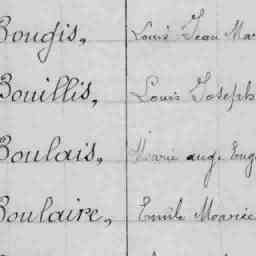 Bougis, Louis Jean Mar
Bouillis, Louis Joseph
Boulais, Marie aug. Eug
Boulaire, Emile Maurice